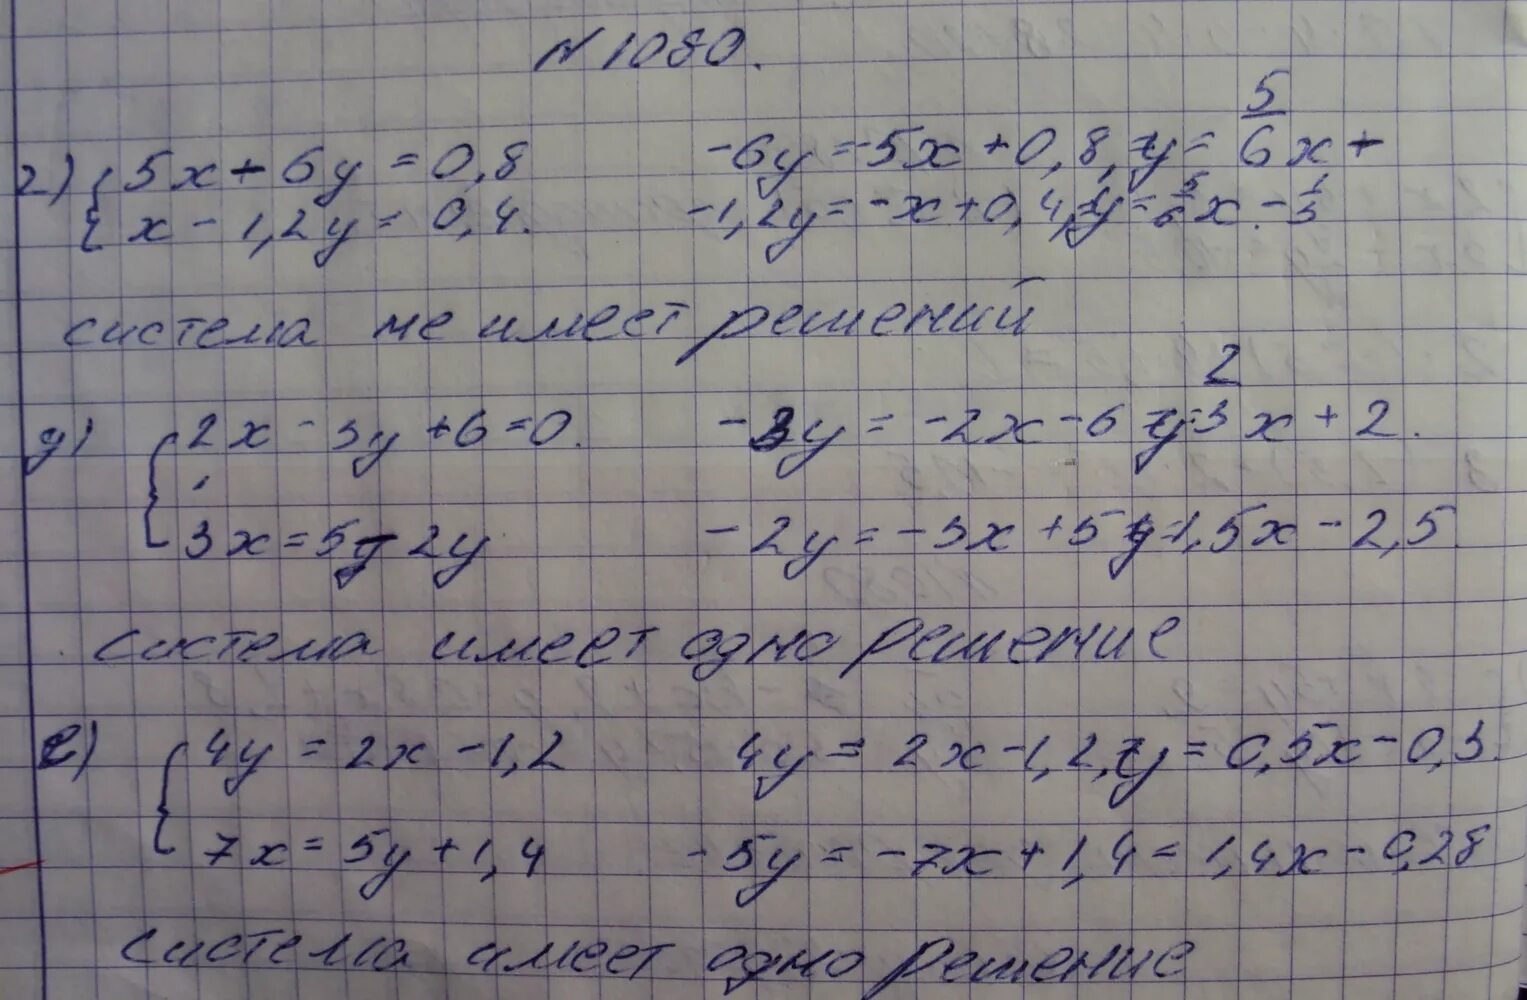 N 1080.
г) { 5x - 6y = 0,8 -6y = -5x + 0,8, y = 5/6 x -
x - 1,2y = 0,4. -1,2y = -x + 0,4, y = 5/6 x - 1/3
система не имеет решений
д) { 2x - 3y + 6 = 0. -3y = -2x - 6 y = 2/3 x + 2.
3x = 5 - 2y -2y = -3x + 5 y = 1,5x - 2,5.
система имеет одно решение
е) { 4y = 2x - 1,2 4y = 2x - 1,2, y = 0,5x - 0,3.
7x = 5y + 1,4 -5y = -7x + 1,4 = 1,4x - 0,28
система имеет одно решение